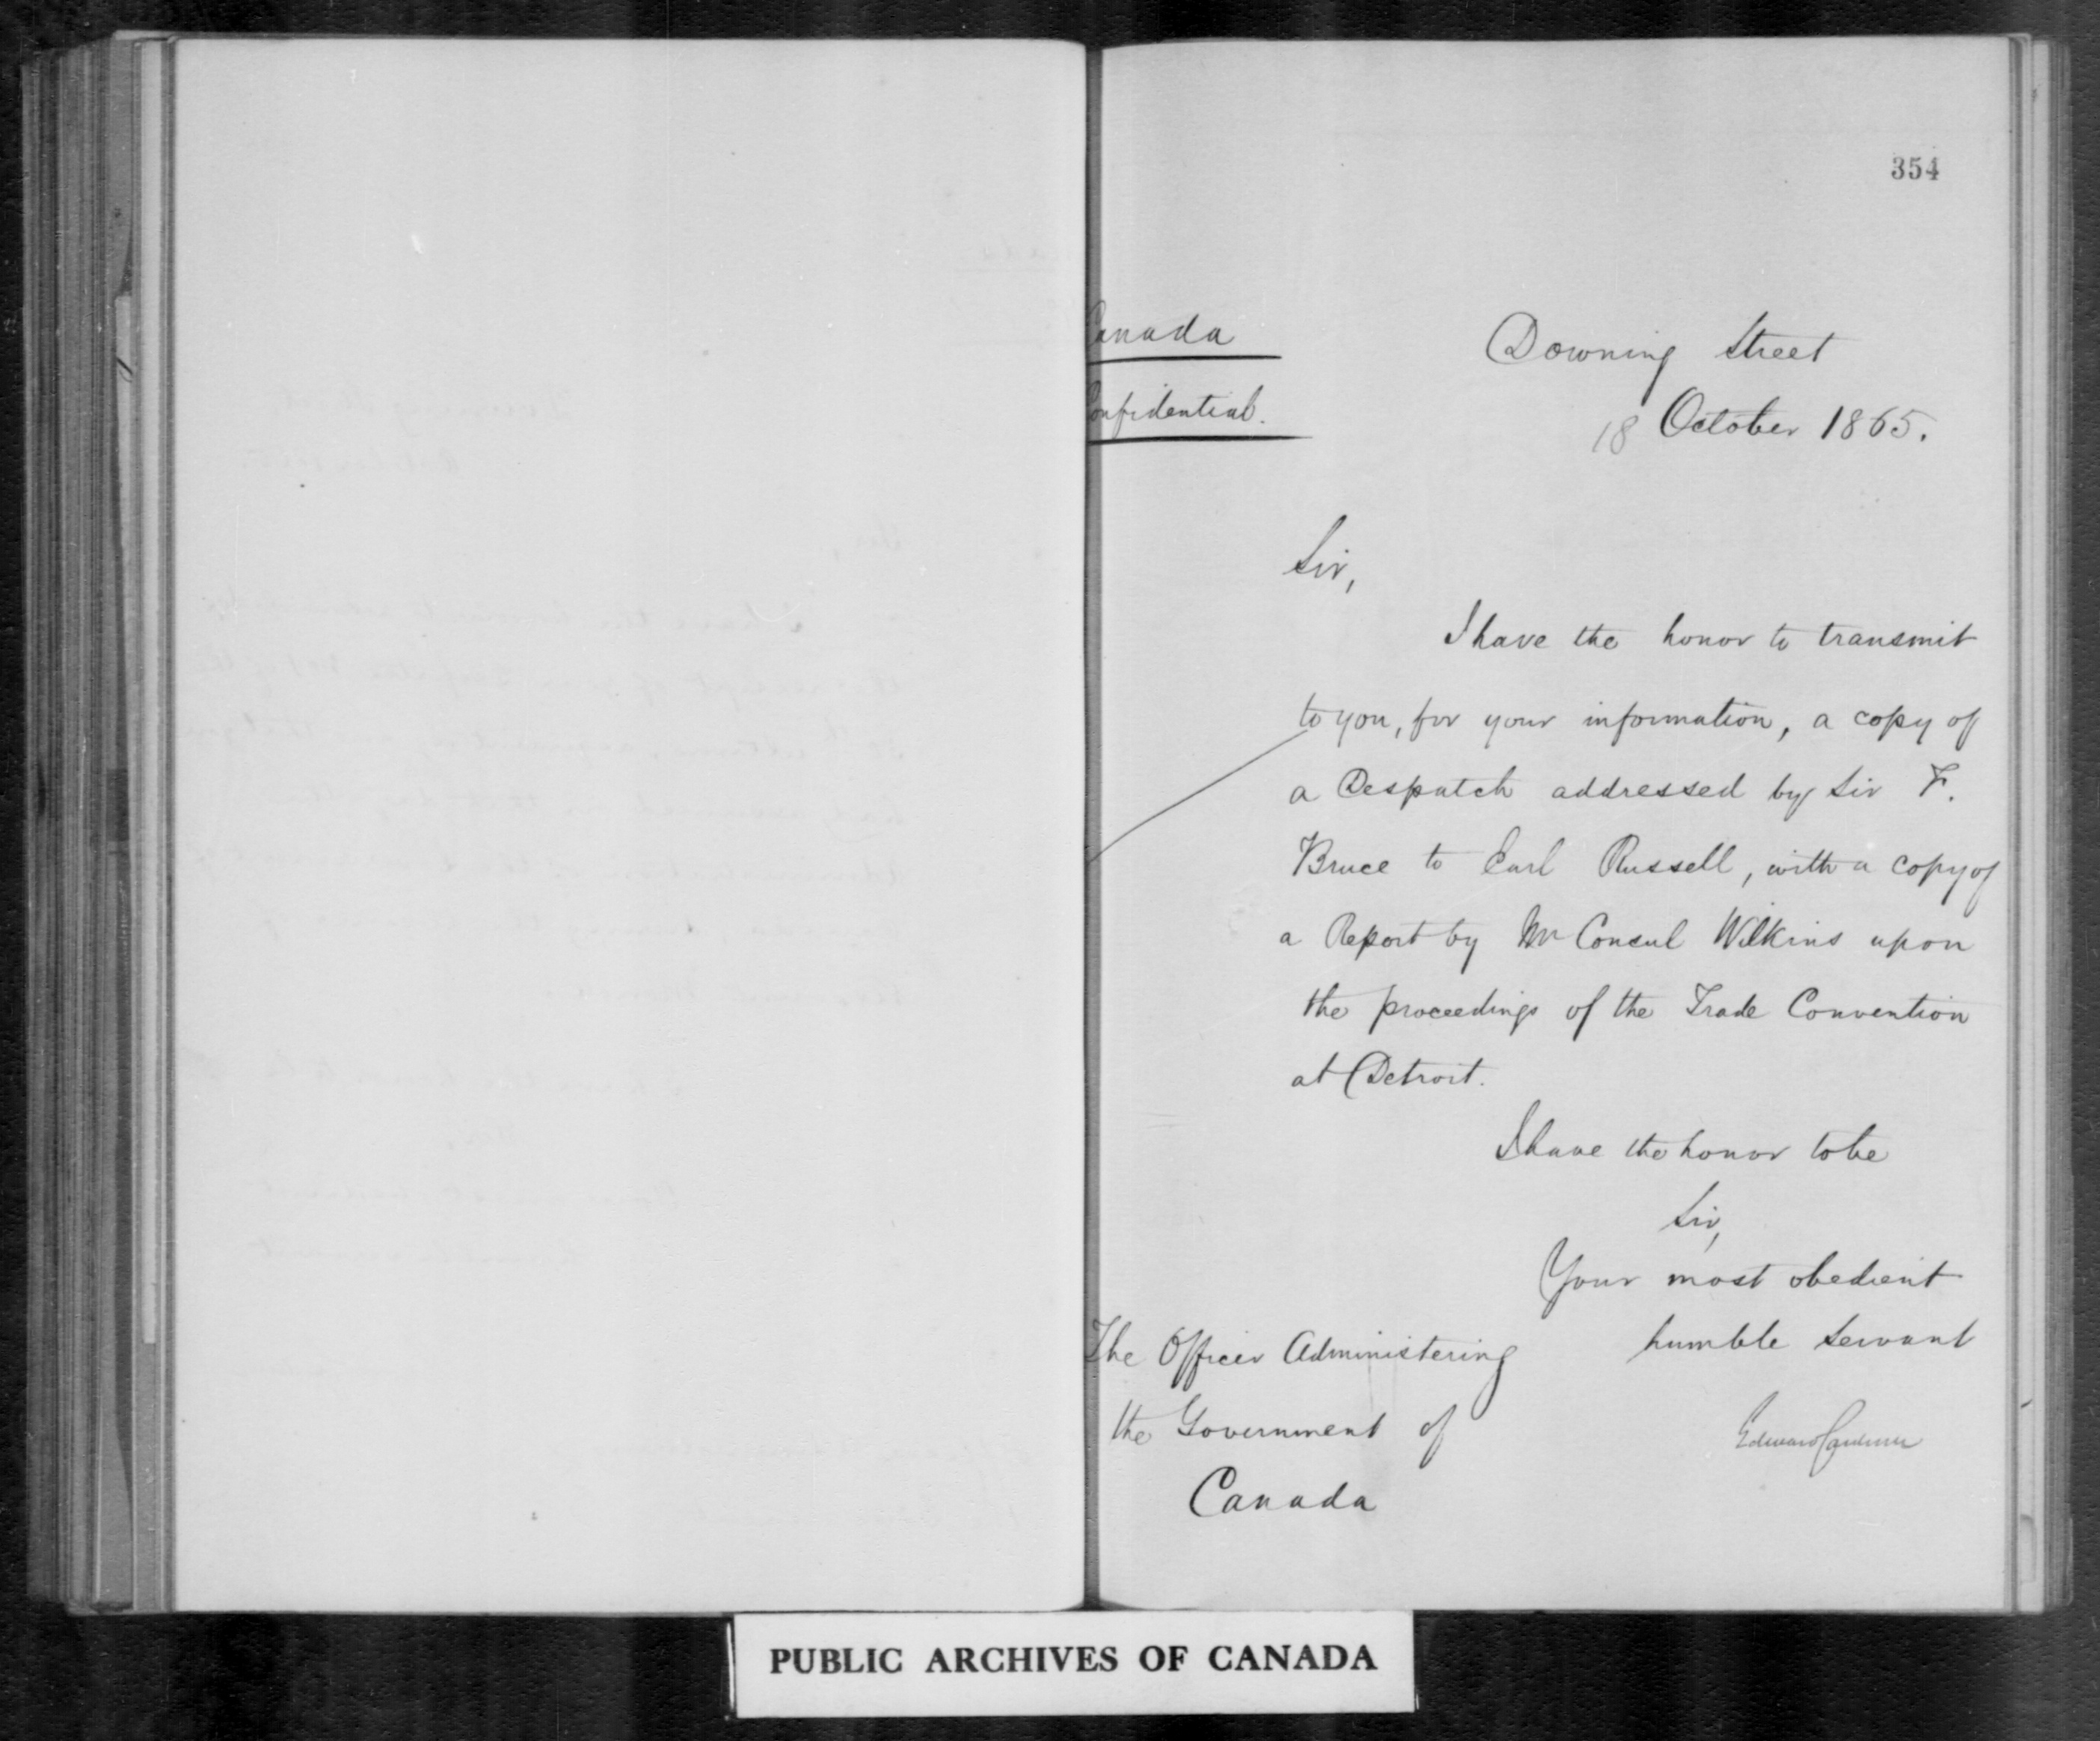 354
Canada
Confidential.
Downing Street
18 October 1865.
Sir,
I have the honor to transmit
to you, for your information, a copy of
a Despatch addressed by Sir F.
Bruce to Earl Russell, with a copy of
a Report by Mr Consul Wilkins upon
the proceedings of the Trade Convention
at Detroit.
I have the honor to be
Sir,
Your most obedient
humble servant
Edward Cardwell
The Officer Administering
the Government of
Canada
PUBLIC ARCHIVES OF CANADA